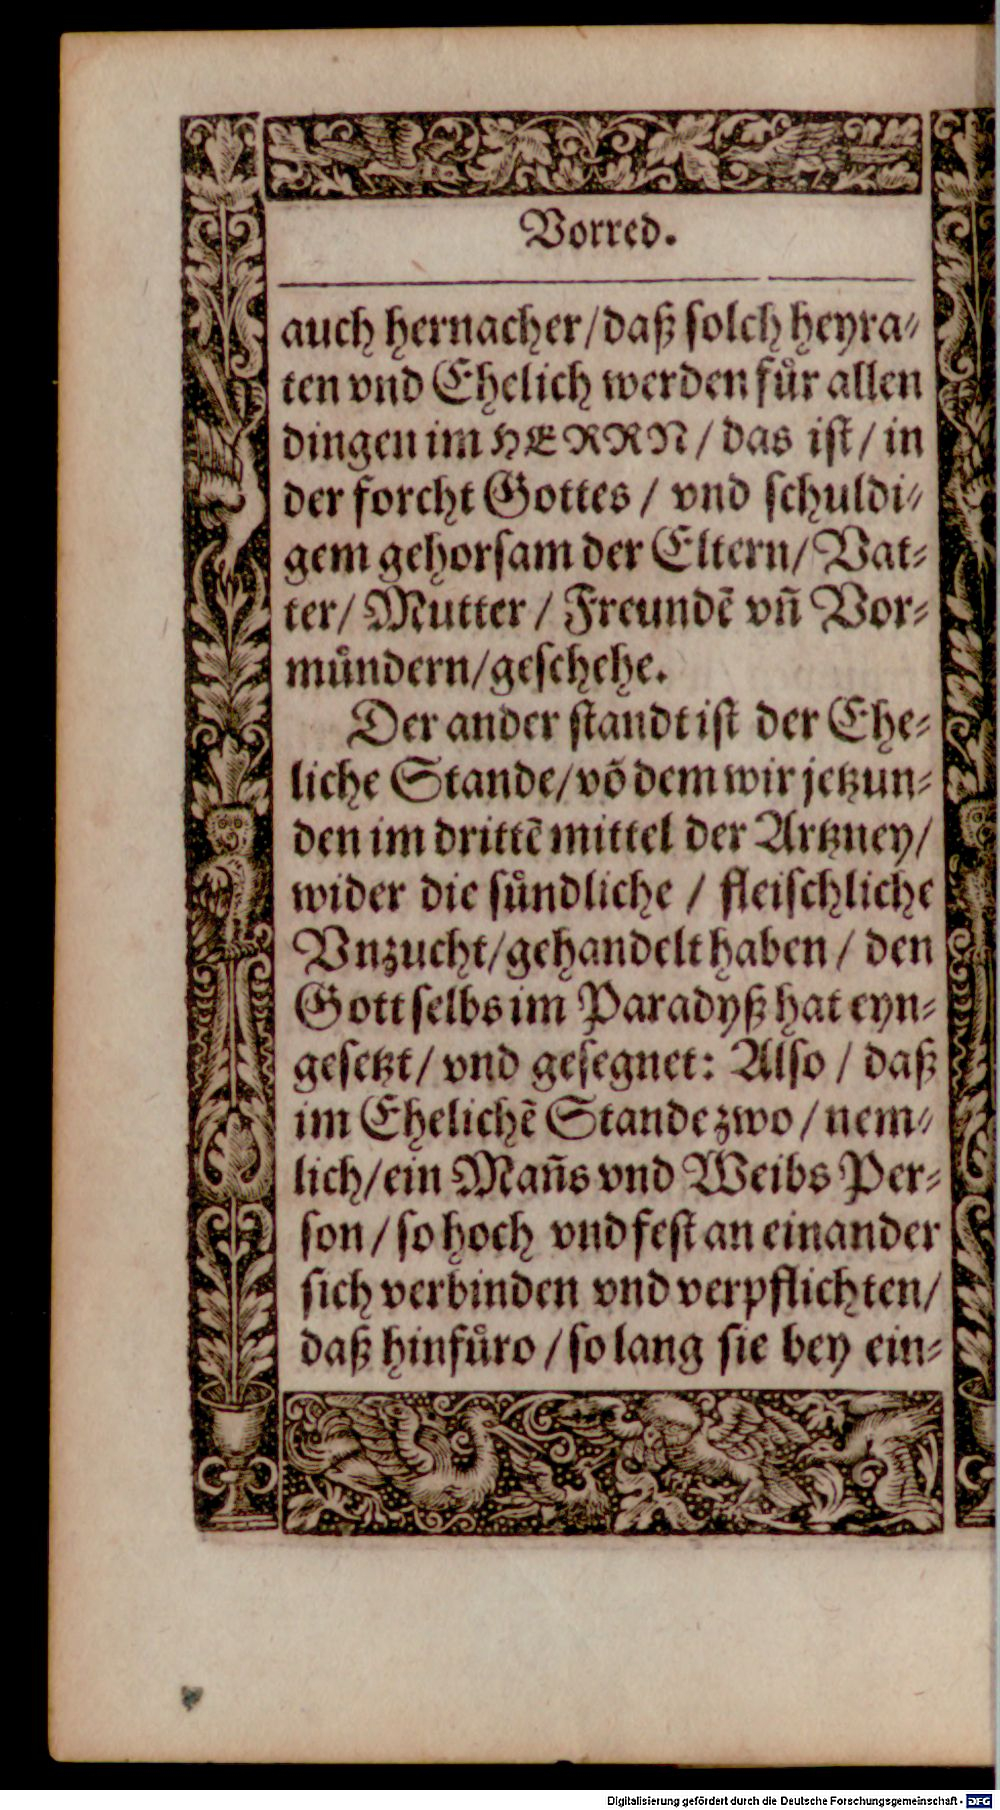 Vorred.
auch hernacher/daß ſolch heyra⸗
ten vnd Ehelich werden fuͤr allen
dingen im HERRN/ das iſt/ in
der forcht Gottes / vnd ſchuldi⸗
gem gehorſam der Eltern/ Vat⸗
ter/ Mutter / Freundẽ vñ Vor⸗
muͤndern/geſchehe.
Der ander ſtandt iſt der Ehe⸗
liche Stande/ võ dem wir jetzun⸗
den im drittẽ mittel der Artzney/
wider die ſuͤndliche / fleiſchliche
Vnzucht/gehandelt haben/ den
Gott ſelbs im Paradyß hat eyn⸗
geſetzt/ vnd geſegnet: Alſo / daß
im Ehelichẽ Stande zwo / nem⸗
lich/ein Mañs vnd Weibs Per⸗
ſon / ſo hoch vnd feſt an einander
ſich verbinden vnd verpflichten/
daß hinfuͤro / ſo lang ſie bey ein⸗
Digitalisierung gefördert durch die Deutsche Forschungsgemeinschaft - DFG